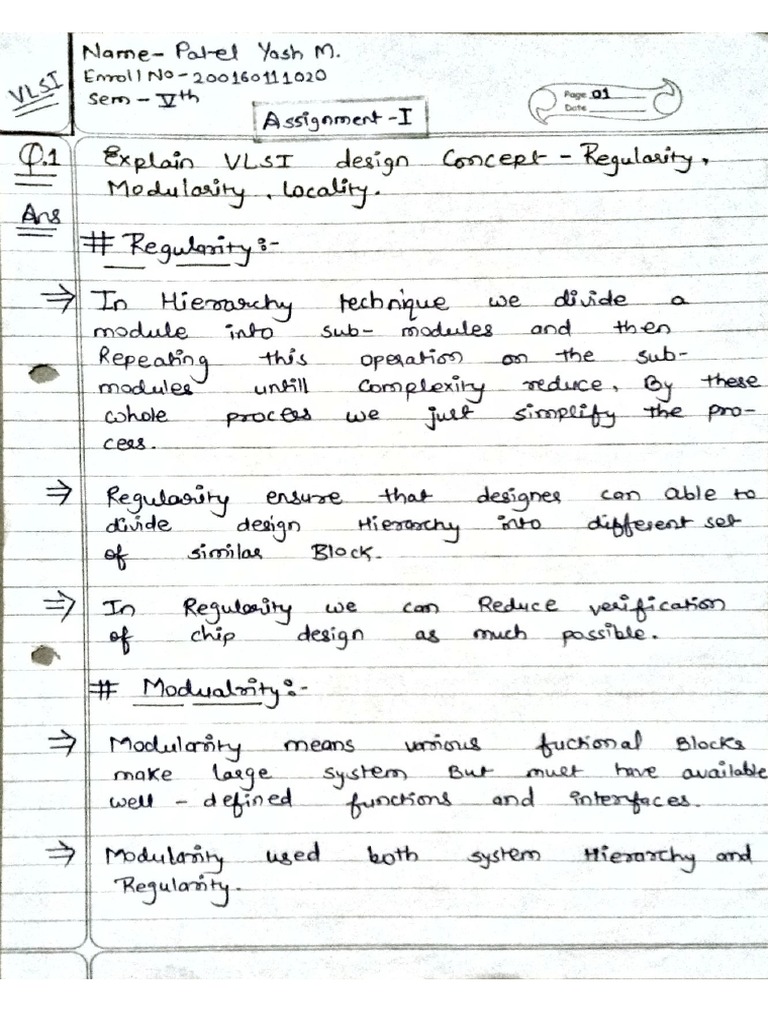 VLSI
Name- Patel Yash M.
Enroll No - 200160111020
Sem - Vth
Assignment - I
Page 01
Date
Q.1 Explain VLSI design Concept - Regularity,
Modularity, Locality.
Ans
# Regularity:-
⇒ In Hierarchy technique we divide a
module into sub- modules and then
Repeating this operation on the sub-
modules untill Complexity reduce, By these
whole process we just simplify the pro-
cess.
⇒ Regularity ensure that designer can able to
divide design Hierarchy into different set
of similar Block.
⇒ In Regularity we can Reduce verification
of chip design as much possible.
# Modualrity:-
⇒ Modularity means various fuctional Blocks
make large system But must have available
well - defined functions and interfaces.
⇒ Modularity used both system Hierarchy and
Regularity.